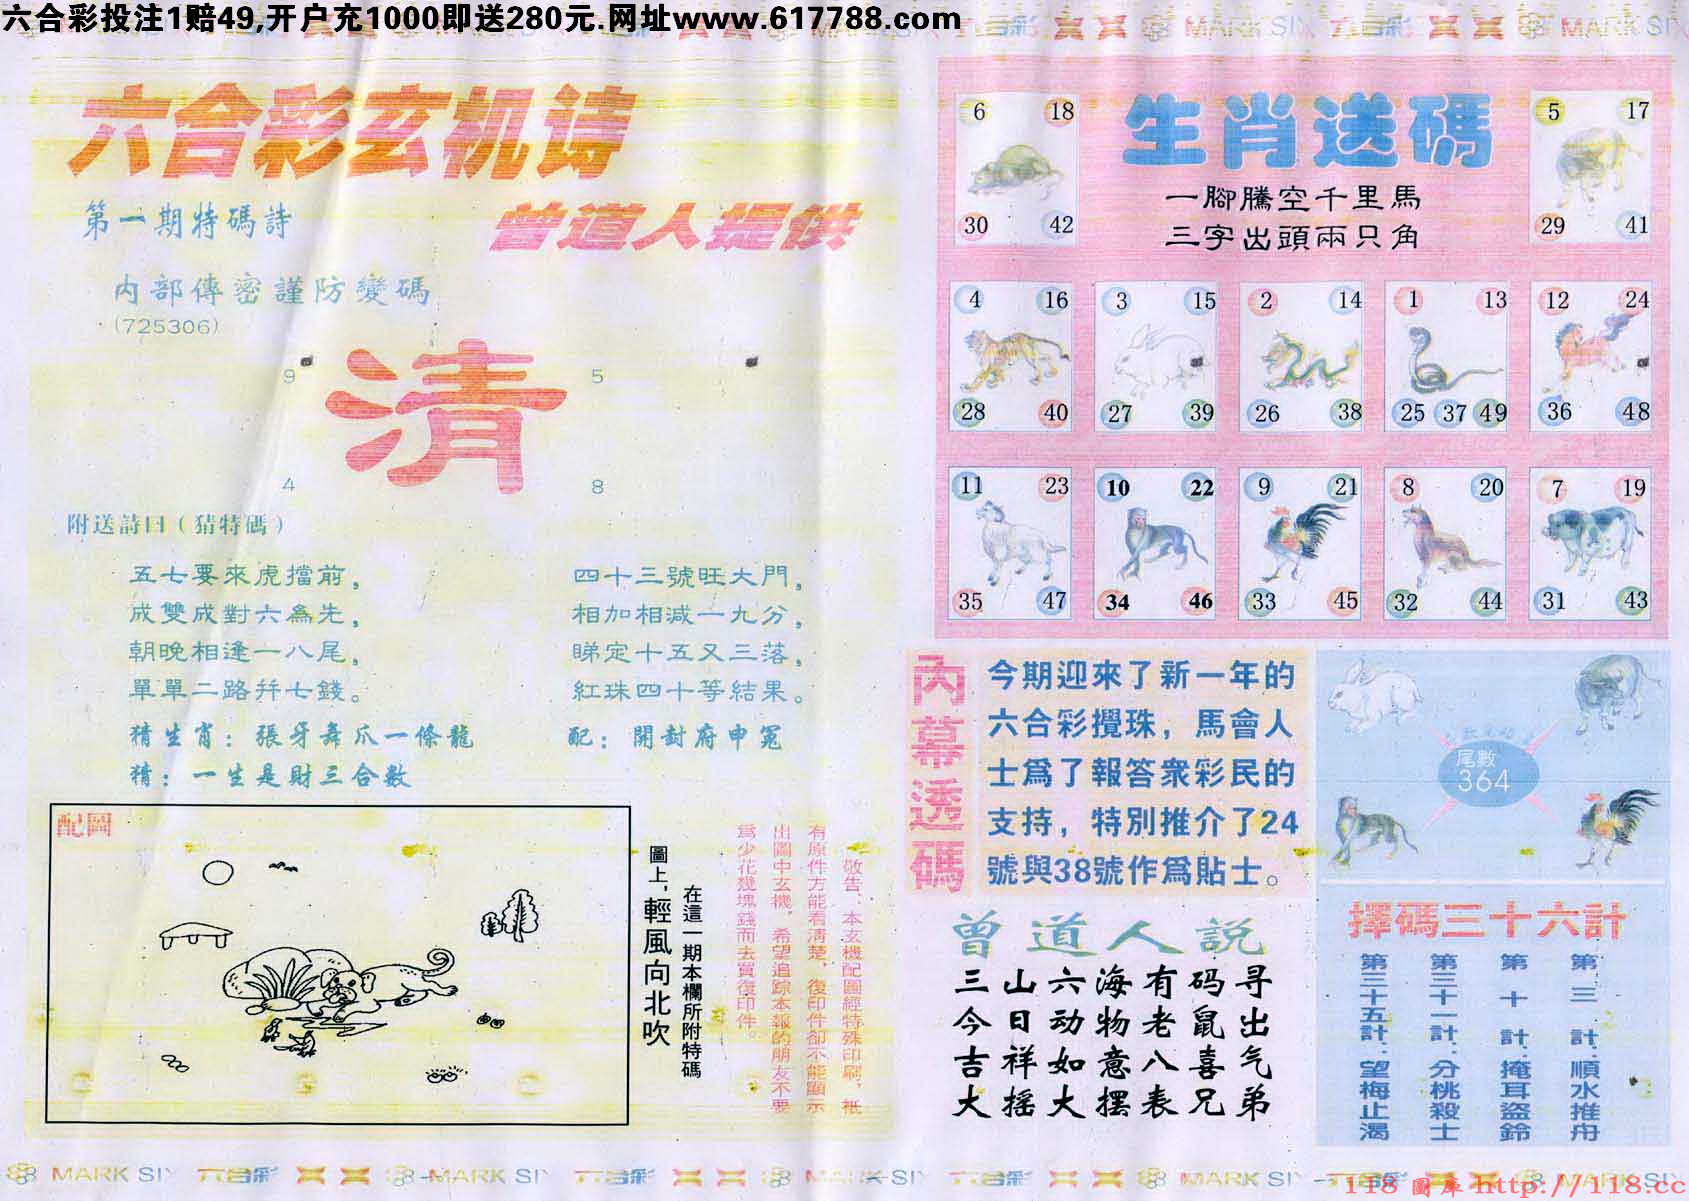 六合彩投注1赔49,开户充1000即送280元.网址www.617788.com
六合彩玄机诗
第一期特碼詩
曾道人提供
内部傳密謹防變碼
(725306)
9
5
清
4
8
附送詩曰(猜特碼)
五七要來虎擋前，
成雙成對六為先，
朝晚相逢一八尾，
單單二路并七錢。
四十三號旺大門，
相加相減一九分，
睇定十五又三落，
紅珠四十等結果。
猜生肖：張牙舞爪一條龍
配：開封府申冤
猜：一生是財三合數
配圖
在這一期本欄所附特碼
圖上，輕風向北吹
敬告，本玄機配圖經特殊印刷，衹
有原件方能看清楚，復印件卻不能顯示
出圖中玄機，希望追踪本報的朋友不要
爲少花幾塊錢而去買復印件。
生肖送碼
一腳騰空千里馬
三字出頭兩只角
6 18
30 42
5 17
29 41
4 16
28 40
3 15
27 39
2 14
26 38
1 13
25 37 49
12 24
36 48
11 23
35 47
10 22
34 46
9 21
33 45
8 20
32 44
7 19
31 43
內幕透碼
今期迎來了新一年的
六合彩攪珠，馬會人
士爲了報答衆彩民的
支持，特別推介了24
號與38號作爲貼士。
尾數
364
曾道人説
三山六海有码寻
今日动物老鼠出
吉祥如意八喜气
大摇大摆表兄弟
擇碼三十六計
第三計：順水推舟
第十計：掩耳盜鈴
第三十一計：分桃殺士
第三十五計：望梅止渴
MARK SIX 六合彩
118 圖庫 http://118.cc